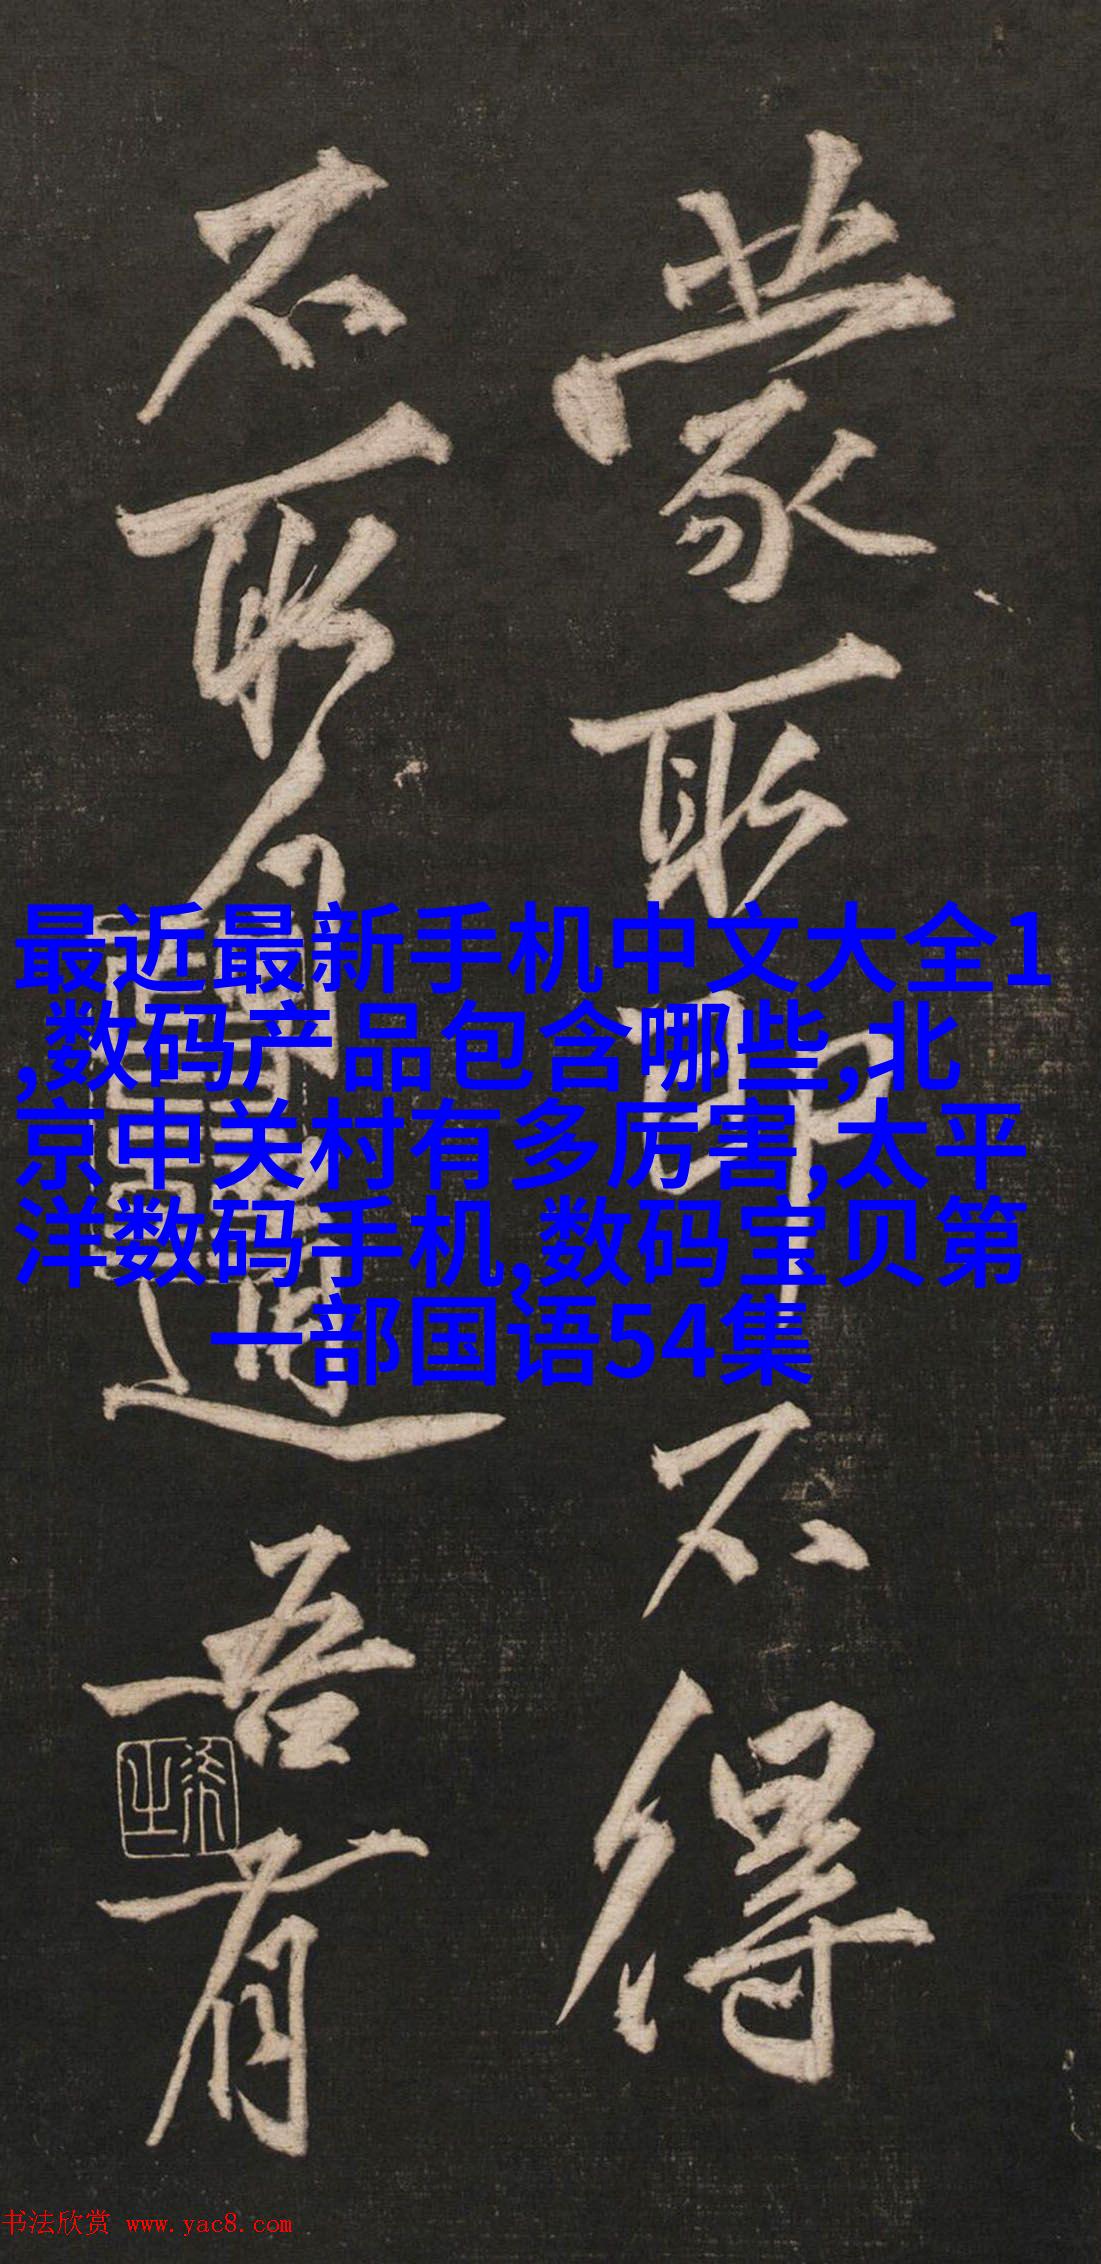 蒙取即不得
不取 遣吾有
最近最新手机中文大全1
,数码产品包含哪些,北
京中关村有多厉害,太平
洋数码手机,数码宝贝第
一部国语54集
书法欣赏 www.yac8.com